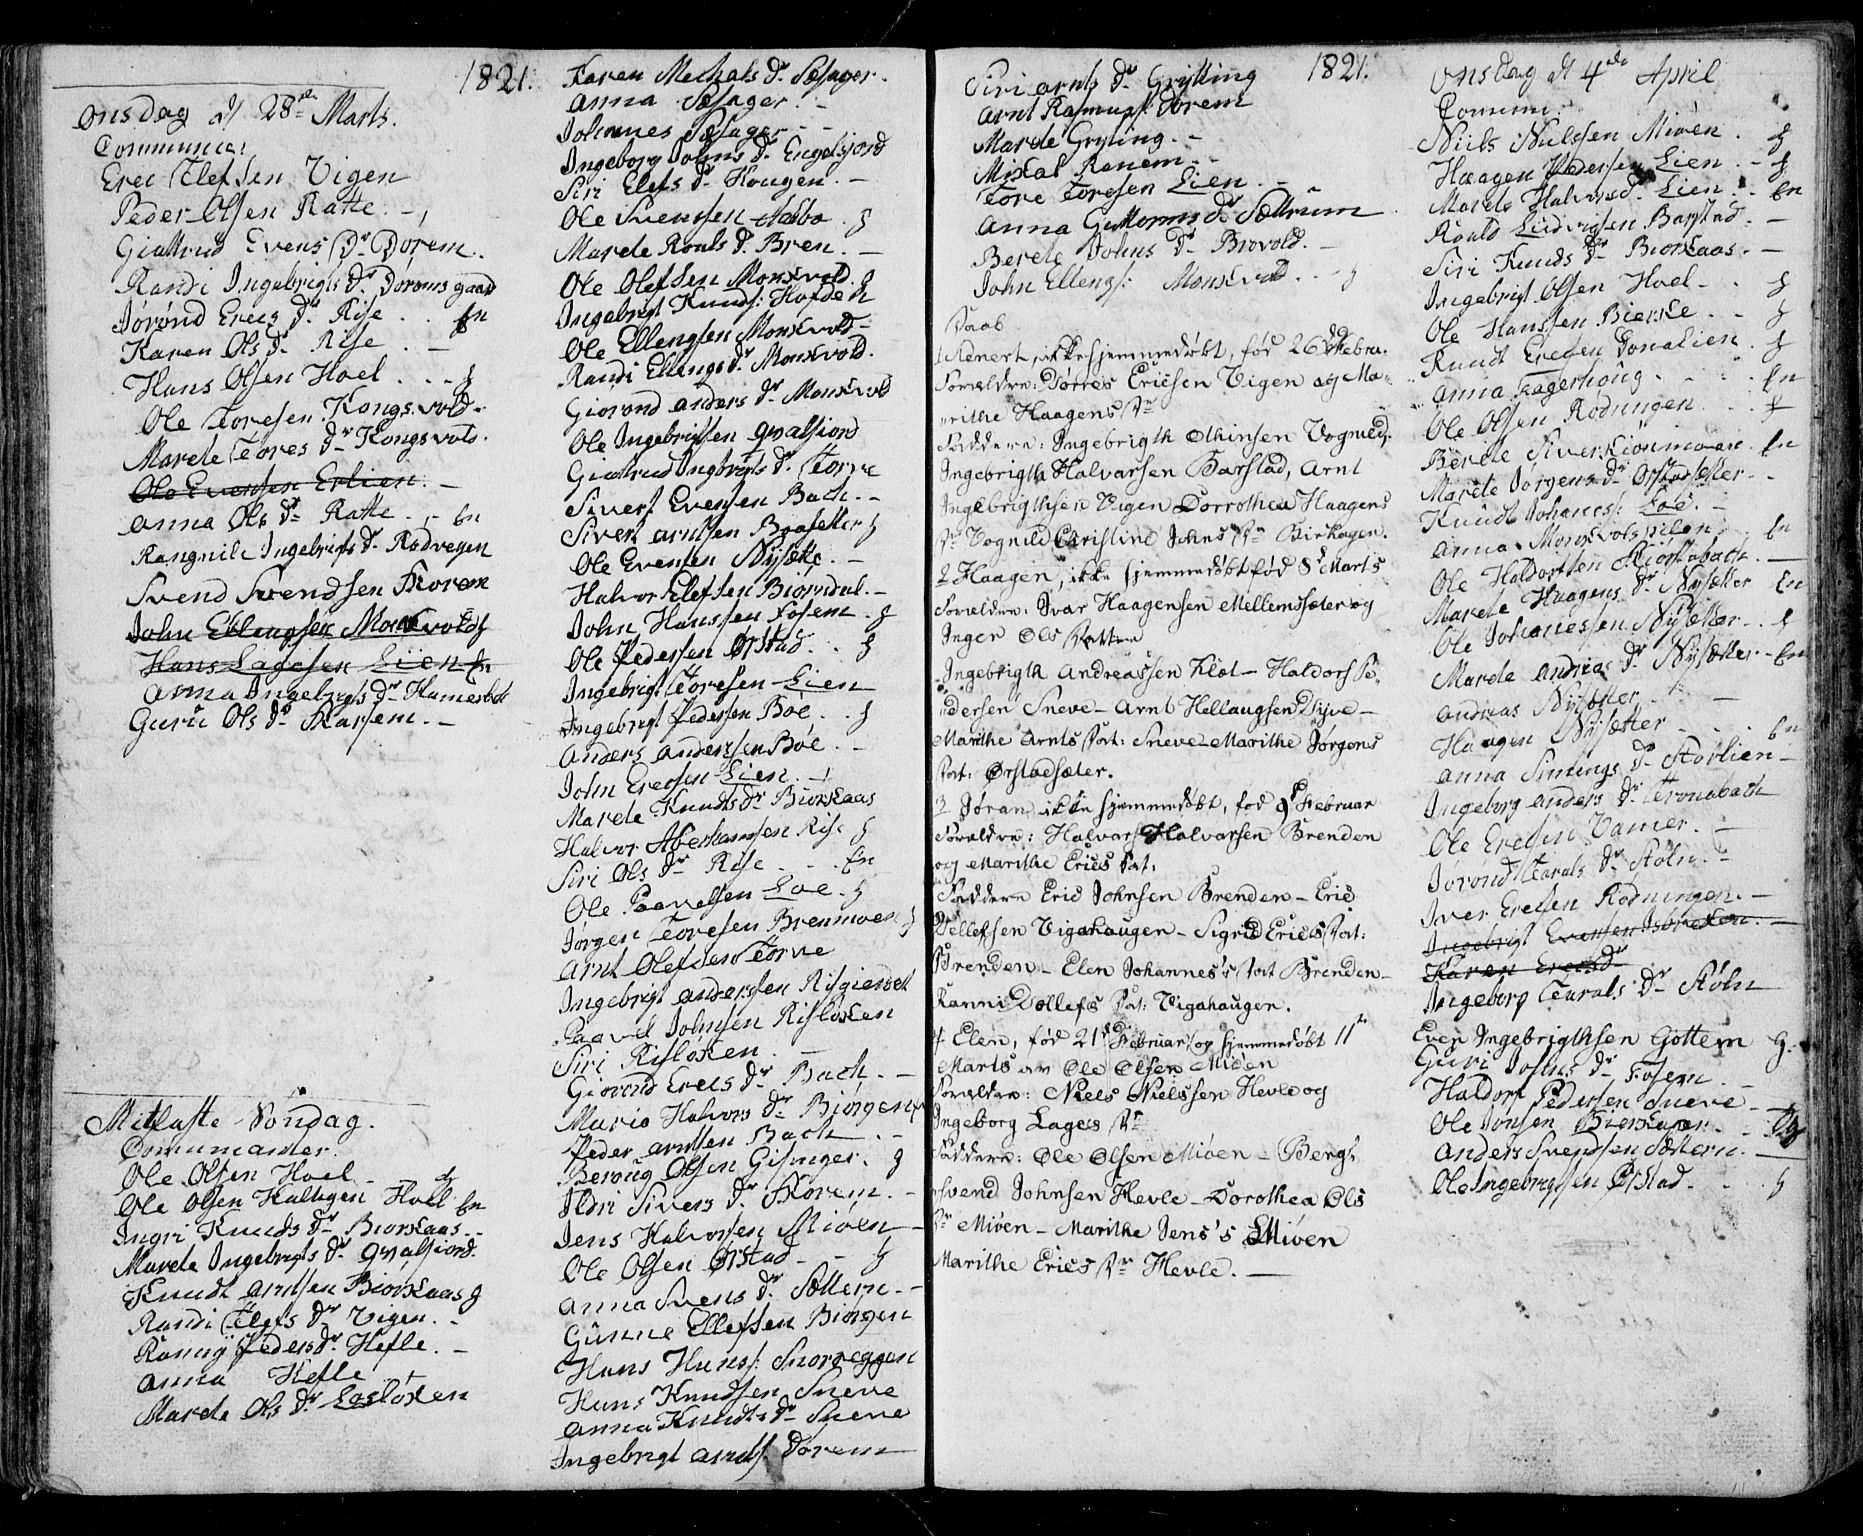 1821.
Onsdag d 28de Marts.
Communica:
Erec Elefsen Vigen
Peder Olsen Ratte. -,
Giøttrud Evens Dr Dørem.
Randi Ingebrigts Dr Dørems gaard
Jørønd Erecs Dr Rise . . En
Karen Ols Dr Rise . -
Hans Olsen Hoel . . - g
Ole Toresen Kongsvold -
Marete Tores Dr Kongsvold.
Ole Evensen Erlien. -
Anna Ols Dr Ratte . - En
Rangnile Ingebrigts Dr Rødveyen
Svend Svendsen Skorem
John Ellengsen Monsvold g
Hans Lagesen Lien En
Anna Ingebrigts Dr Hamersbak
Guru Ols Dr Skarsem. -
Mitfaste Søndag.
Comunicanter.
Ole Olsen Hoel -
Ole Olsen Hoel En
Ingri Knuds Dr Biørskaas -
Marete Ingebrigts Dr Qvalsiord.
Knudt Arntsen Biørskaas g
Randi Elefs Dr Vigen. -
Ranny Peders Dr Hefle. -
Anna Hefle -
Marete Ols Dr Losløken
Karen Mechals Dr Sæsager.
Anna Sæsager. -
Johannes Sæsager - -
Ingeborg Johns Dr Engelsjord
Siri Elefs Dr Kongen. -
Ole Svensen Aabbo . g
Marete Roals Dr Bren. -
Ole Olefsen Monsvold . g
Ingebrigt Knuds: Hofde
Ole Ellengsen Monsvold -
Randi Ellengs Dr Monsvold.
Giørond Anders Dr Monsvold
Ole Ingebrigtsen Qvalsiord
Giøttrud Ingebrigts Dr Torve
Sivert Evensen Bach. -
Sivert Arntsen Braseter g
Ole Evensen Nysæte. -
Halvor Elefsen Biørndal. -
John Hanssen Fosem . g
Ole Pedersen Ørstad. . g
Ingebrigt Toresen Lien
Ingebrigt Pedersen Bøe . . g
Anders Andersen Bøe. -
John Erecsen Lien. -
Marete Knudts Dr Biørskaas
Halvor Aberhamsen Rise g
Siri Ols Dr Rise . . . En
Ole Paavelsen Loe . g
Jørgen Toresen Brenmoen g
Arnt Olefsen Torve
Ingebrigt Andersen Risgierdet
Paavel Johnsen Risløken
Siri Risløken. -
Giørond Erecs Dr Bach. -
Maria Halvors Dr Biørgen
Peder Arntsen Bach . -
Beroug Olsen Gisinger. g
Ildri Sivers Dr Skorem. -
Jens Halvorsen Miøen -
Ole Olsen Ørstad - g
Anna Svens Dr Sættem. -
Gunne Ellefsen Biørgen
Hans Hans: Snoreggen
Hans Knudsen Sneve
Anna Knudts Dr Sneve
Ingebrigt Arnts: Dørem
Siri Arnts Dr Grytting
Arnt Rasmus: Dørem
Marete Gryting. -
Mikal Ranem. -
Tore Toresen Lien. -
Anna Guttorms Dr Sættrum
Berete Johns Dr Brovold. -
John Ellengs: Monsvold . . g
Daab
1 Renert, ikke hjemmedøbt, fød 26 Febru.
Forældre: Dørres Ericsen Vigen og Ma-
rithe Haagens Dr
Faddere: Ingebrigth Othinsen Vognild,
Ingebrigth Halvarsen Barstad, Arnt
Ingebrigthsen Vigen Dorrothea Haagens
Dr Vognild Christine Johns Dr Birkagen.
2 Haagen, ikke hjemmedøbt fød 8de Marts
Forældre: Ivar Haagensen Mellemsæter og
Inger Ols Datter
Ingebrigth Andreassen Klæt - Haldors Pe-
dersen Sneve - Arnt Hellaugsen Dyve -
Marithe Arnts Dat: Sneve - Marithe Jørgens
Dat: Ørstadsæter.
3 Jøran ikke hjemmedøbt, fød 9de Februar
Forældre: Halvars Halvarsen Brenden
og Marithe Erics Dat:
Faddere Eric Johnsen Brenden - Eric
Dellefsen Vigahaugen - Sigrid Erics Dat:
Brenden - Elen Johannes's Dat Brenden -
Ranni Dellefs Dat: Vigahaugen.
4 Elen, fød 21de Februar, og hjemmedøbt 11te
Marts av Ole Olsen Miøen
Forældre: Niels Nielssen Hevle og
Ingeborg Lages Dr
Faddere: Ole Olsen Miøen - Bergt
Svend Johnsen Hevle - Dorothea Ols
Dr Miøen - Marithe Jens's Miøen
Marithe Erics Dr Hevle. -
1821.
Onsdag d 4de April
Comuni:
Niels Nielssen Miøen . g
Haagen Pedersen Lien. - g
Marete Halvors Dr Lien . - En
Roald Ludvigsen Barstad. -
Siri Knuds Dr Biørskaas. -
Ingebrigt Olsen Hoel - . g
Ole Hanssen Bierke . - g
Knudt Erecsen Donalien . g
Anna Fagerhoug . . . En
Ole Olsen Rødningen . . g
Berete Siversionmoen . En
Marete Jørgens Dr Ørstadsetter -
Knudt Johanes: Loe. -
Anna Monsvolspilen . En
Ole Haldorsen Riøstobach. -
Marete Haagens Dr Nysætter En
Ole Johanessen Nysætter . . g
Marete Andrias Dr Nysætter - En
Andreas Nysætter. -
Haagen Nysætter . . . En
Anna Simings Dr Storlien -
Ingeborg Anders Dr Tronabach
Ole Erecsen Vamer. -
Jørond Torals Dr Støln. -
Iver Erecsen Rødningen. -
Ingebrigt Evensen Isbreken. -
Karen Erecs Dr
Ingeborg Torals Dr Støln
Even Ingebrigthsen Gottem g.
Guri Johns Dr Fosem. -
Haldorr Pedersen Sneve -
Ole Jonsen Bierskaper. -
Anders Svendsen Sættem. -
Ole Ingebrigtsen Ørstad. . . g